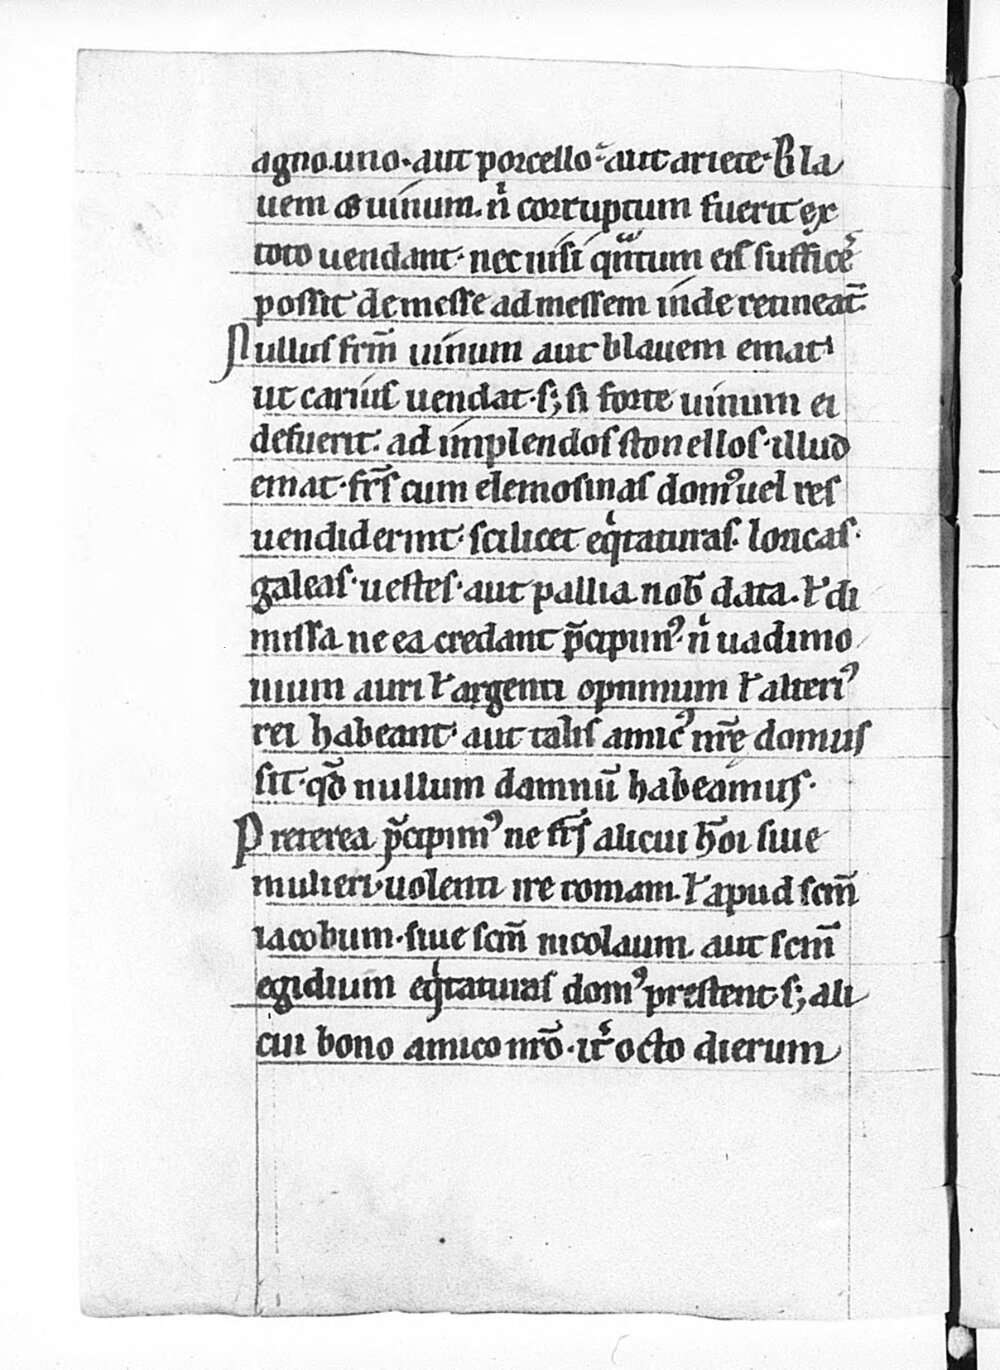 agno uno · aut porcello · aut ariete · Bla
uem & uinum · nͥ corruptum fuerit ex
toto uendant · nec nisi qͣntum eis sufficẽ
possit de messe ad messem inde retineat᷒ ·
Nullus frm̃ uinum aut blauem emat ·
ut carius uendat · s; si forte uinum ei
defuerit · ad implendos stonellos · illud
emat · frs̃ cum elemosinas domꝰ uel res
uendiderint · scilicet eqͥtaturas · loricas ·
galeas · uestes · aut pallia nob̃ data · ł di
missa ne ea credant p̃cipimꝰ · nͥ uadimo
nium auri ł argenti optimum ł alteriꝰ
rei habeant · aut talis amicꝰ nrẽ domus
sit · qđ nullum damnũ habeamus ·
Preterea p̃cipimꝰ ne frs̃ alicui hõi siue
mulieri · uolenti ire romam · ł apud scm̃
iacobum · siue scm̃ nicolaum aut scm̃
egidium eqͥtaturas domꝰ prestent · s; ali
cui bono amico nrõ · it̃ octo dierum